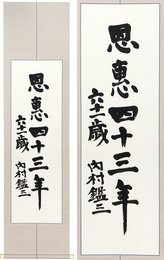 恩恵四十三年
六十一歳 内村鑑三
恩恵四十三年
六十一歳 内村鑑三